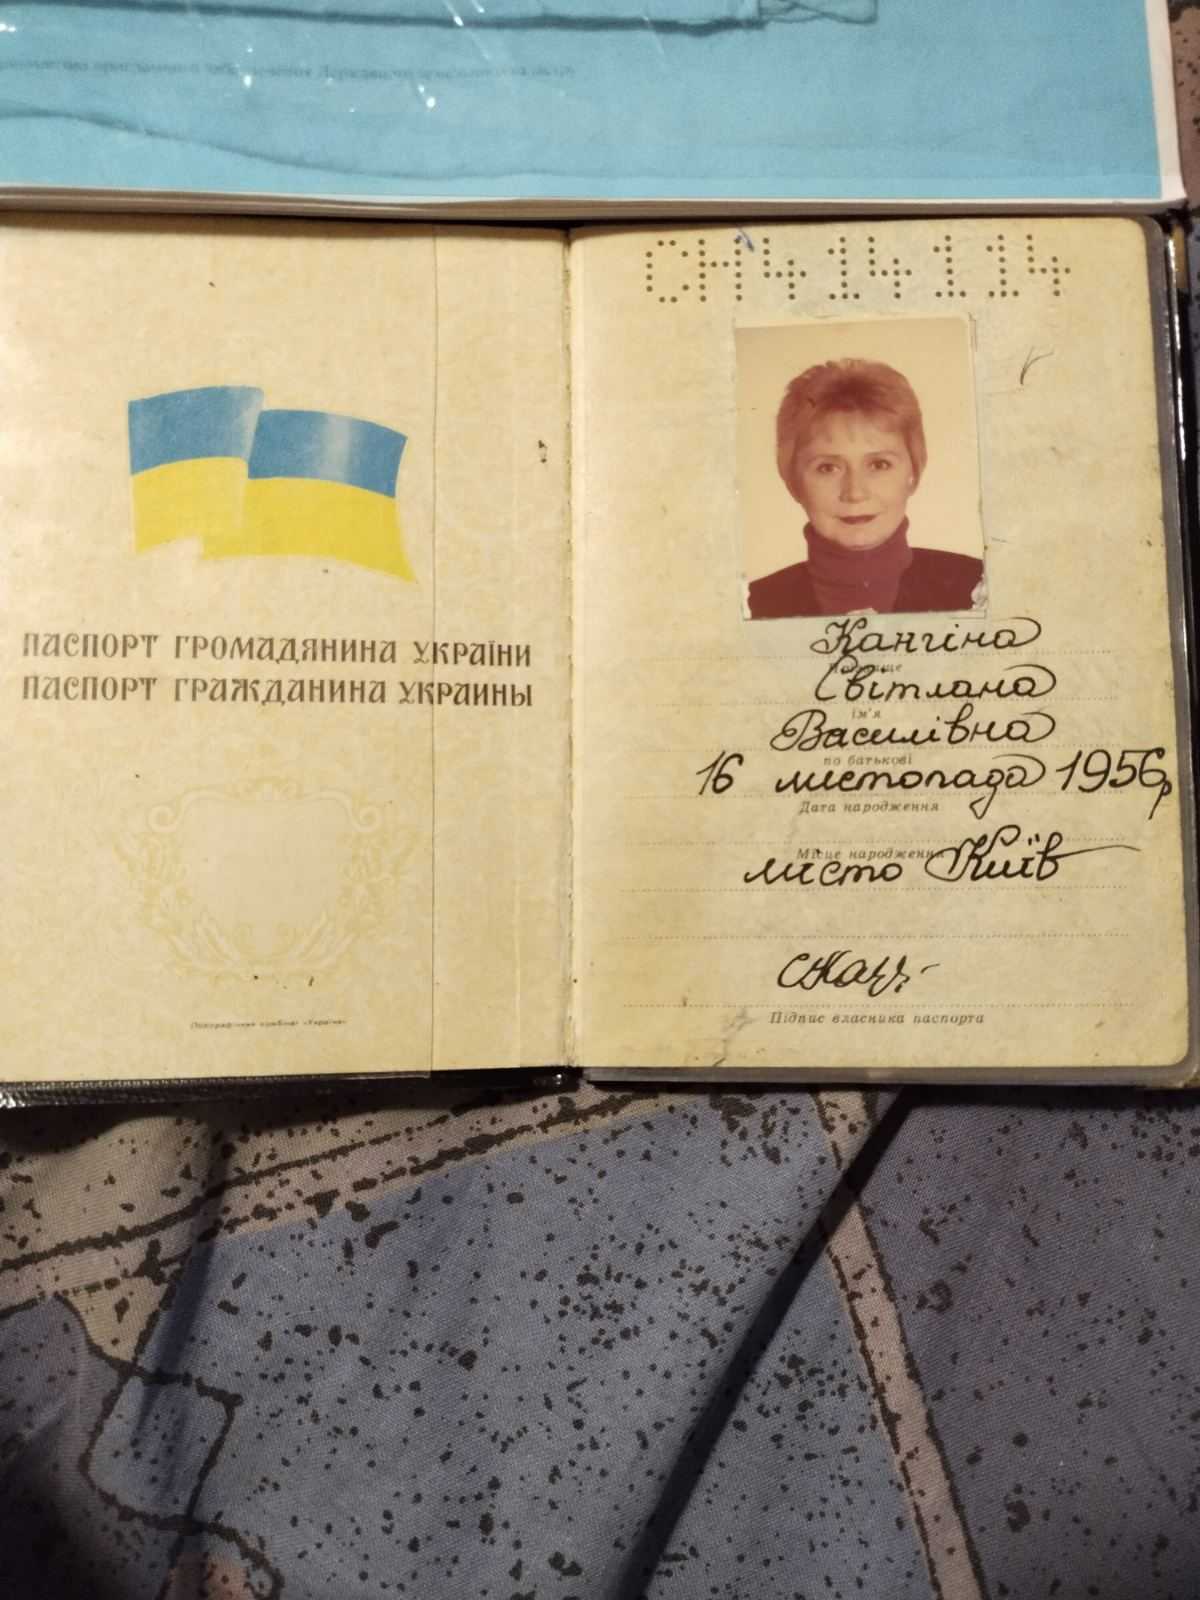 ПАСПОРТ ГРОМАДЯНИНА УКРАЇНИ
ПАСПОРТ ГРАЖДАНИНА УКРАИНЫ
СН414114
Кангіна
Прізвище
Світлана
ім'я
Василівна
по батькові
16 листопада 1956р
Дата народження
Місце народження
місто Київ
Підпис власника паспорта